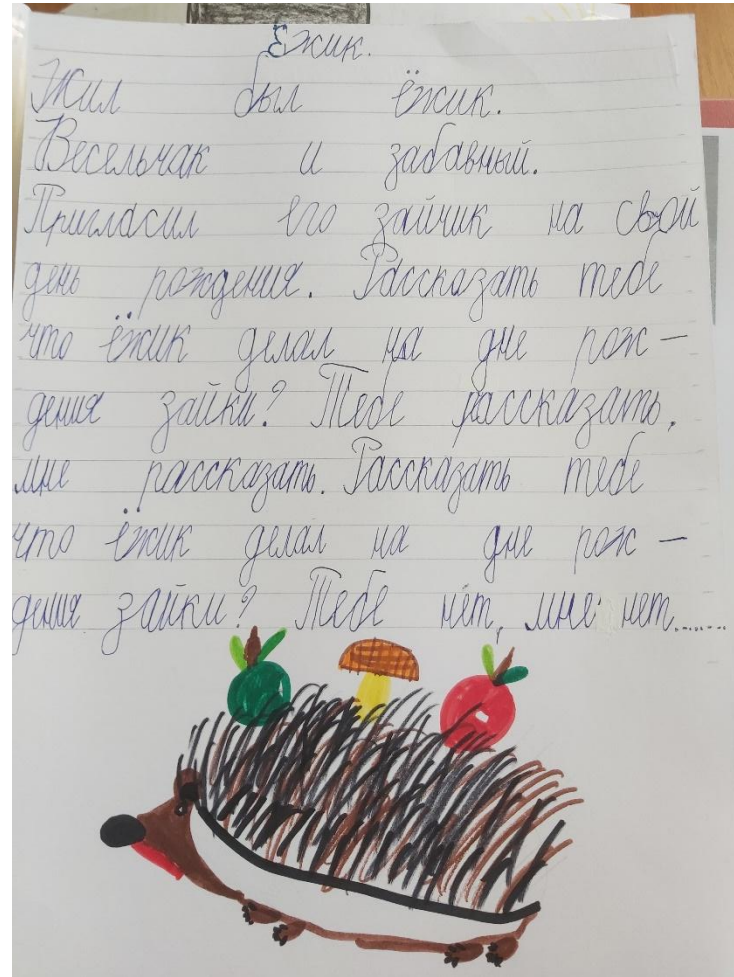 Ёжик.
Жил был ёжик.
Весельчак и забавный.
Пригласил его зайчик на свой
день рождения. Рассказать тебе
что ёжик делал на дне рож -
дения зайки? Тебе рассказать,
мне рассказать. Рассказать тебе
что ёжик делал на дне рож -
дения зайки? Тебе нет, мне нет.......